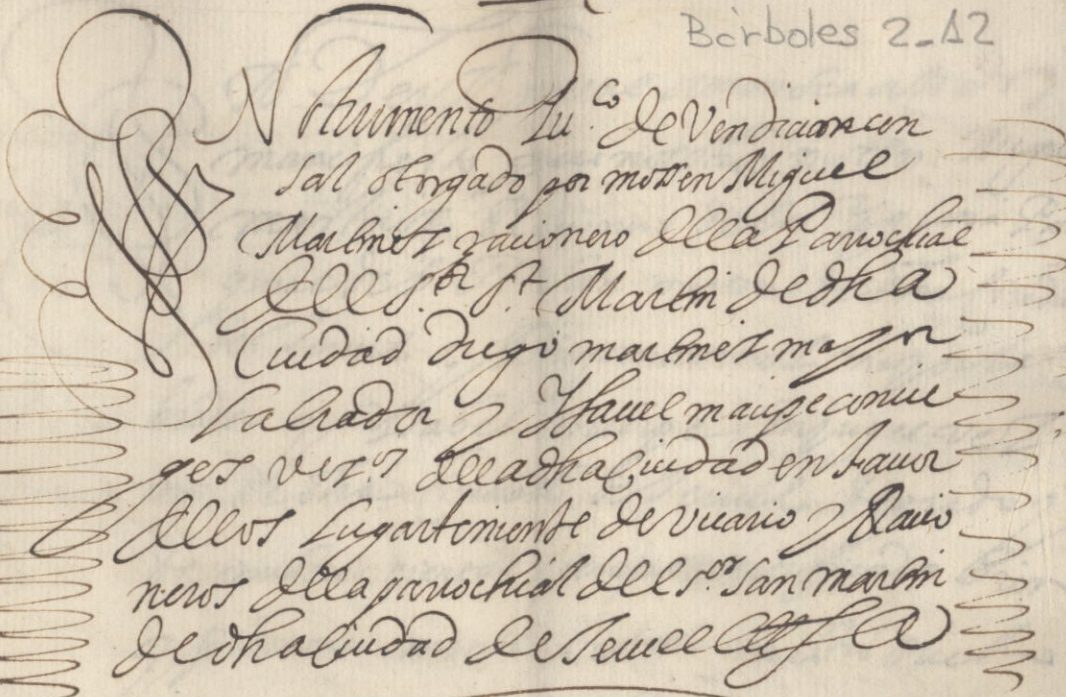 Bárboles 2-12
Ynstrumento pu.co de Vendicion cen
sal otorgado por mossen Miguel
Martinez racionero della Parrochial
dell s.or s.t Martin de dha
Ciudad diego martinez mayor
labrador y Ysauel coniu
ges vez.os de lla dha Ciudad en fauor
dellos lugarteniente de vicario y Racio
neros della parrochial dell s.or san martin
de dha Ciudad de Teruel